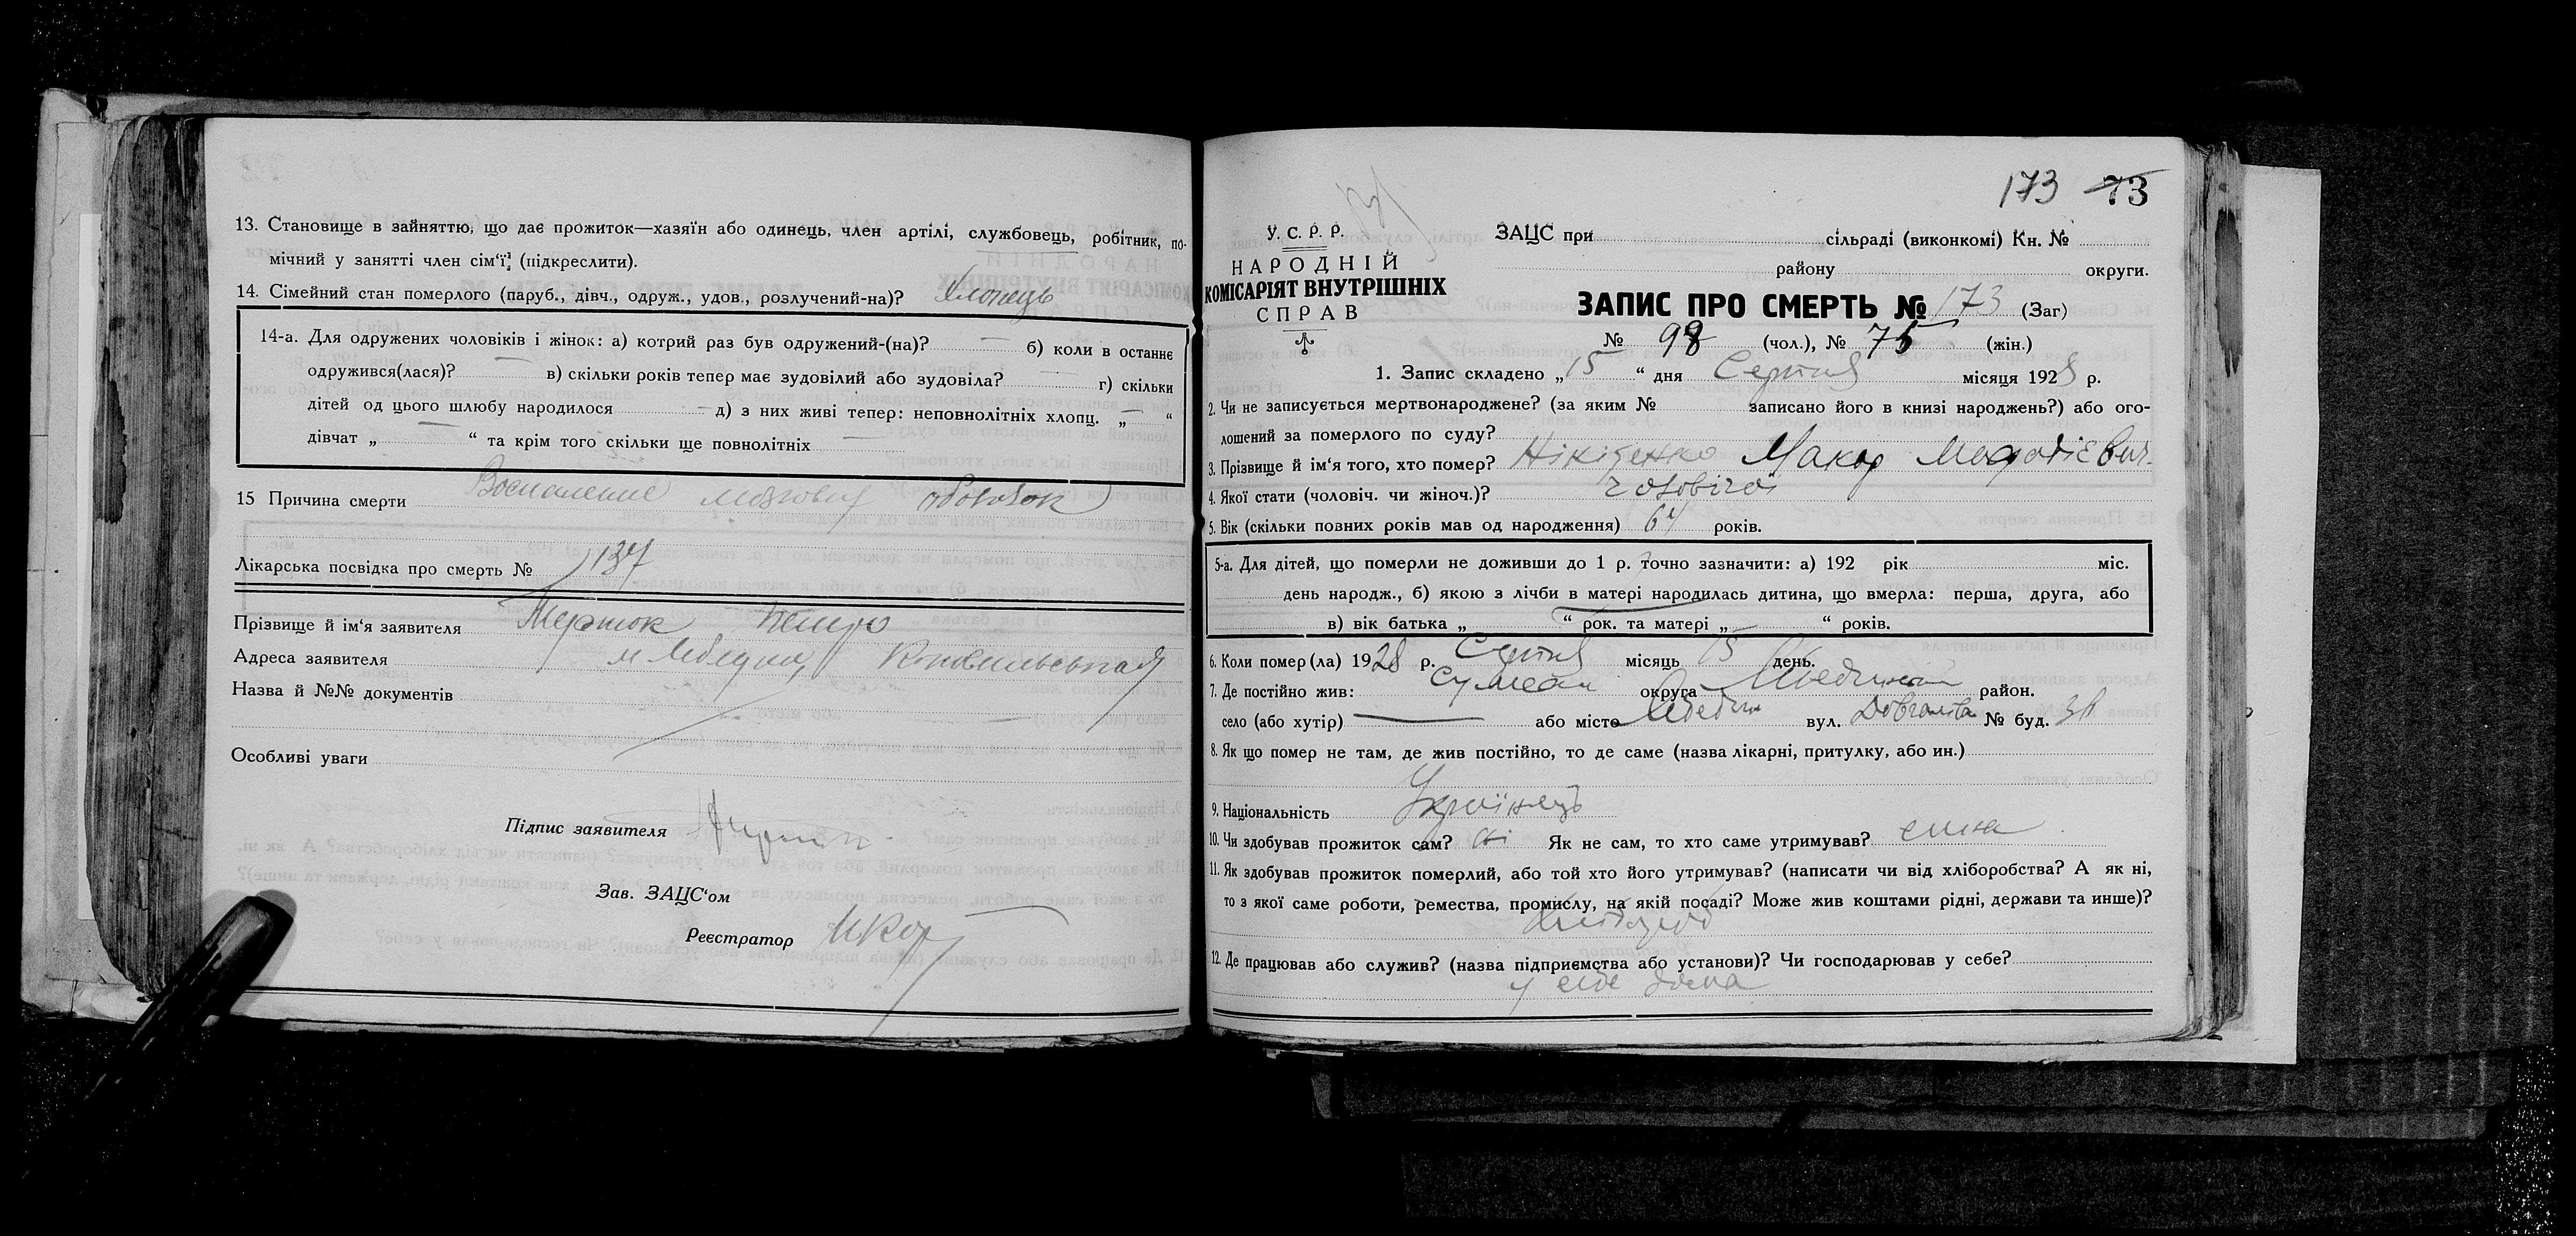 13. Становище в зайняттю, що дає прожиток—хазяїн або одинець, член артілі, службовець, робітник, по-
мічний у занятті член сім'ї, (підкреслити).
14. Сімейний стан померлого (паруб., дівч., одруж., удов., розлучений-на)? Хлопець
14-а. Для одружених чоловіків і жінок: а) котрий раз був одружений-(на)? — б) коли в останнє
одружився(лася)? — в) скільки років тепер має зудовілий або зудовіла? — г) скільки
дітей од цього шлюбу народилося — д) з них живі тепер: неповнолітніх хлопц. „ — “
дівчат „ — “ та крім того скільки ще повнолітніх —
15 Причина смерти Воспаление мозговых оболочок
Лікарська посвідка про смерть № 137
Прізвище й ім'я заявителя Петро
Адреса заявителя м Лебедин,
Назва й №№ документів
Особливі уваги
Підпис заявителя
Зав. ЗАЦС'ом
Реєстратор
173 73
У. С. Р. Р.
НАРОДНІЙ
КОМІСАРІЯТ ВНУТРІШНІХ
СПРАВ
ЗАЦС при сільраді (виконкомі) Кн. №
району округи.
ЗАПИС ПРО СМЕРТЬ № 173 (Заг)
№ 98 (чол.), № 75 (жін.)
1. Запис складено „15“ дня Серпня місяця 1928 р.
2. Чи не записується мертвонароджене? (за яким № записано його в книзі народжень?) або ого-
лошений за померлого по суду?
3. Прізвище й ім'я того, хто помер? Нікітенко Макар Мефодієвич.
4. Якої стати (чоловіч. чи жіноч.)? чоловічої
5. Вік (скільки повних років мав од народження) років.
5-а. Для дітей, що померли не доживши до 1 р. точно зазначити: а) 192 рік міс.
день народж., б) якою з лічби в матері народилась дитина, що вмерла: перша, друга, або
в) вік батька „ “ рок. та матері „ “ років.
6. Коли помер(ла) 1928 р. Серпня місяць 15 день.
7. Де постійно жив: Сумська округа Лебединський район.
село (або хутір) — або місто Лебедин вул. № буд.
8. Як що помер не там, де жив постійно, то де саме (назва лікарні, притулку, або ин.)
9. Національність Українець
10. Чи здобував прожиток сам? ні Як не сам, то хто саме утримував?
11. Як здобував прожиток померлий, або той хто його утримував? (написати чи від хліборобства? А як ні,
то з якої саме роботи, ремества, промислу, на якій посаді? Може жив коштами рідні, держави та инше)?
12. Де працював або служив? (назва підприємства або установи)? Чи господарював у себе?
у себе дома